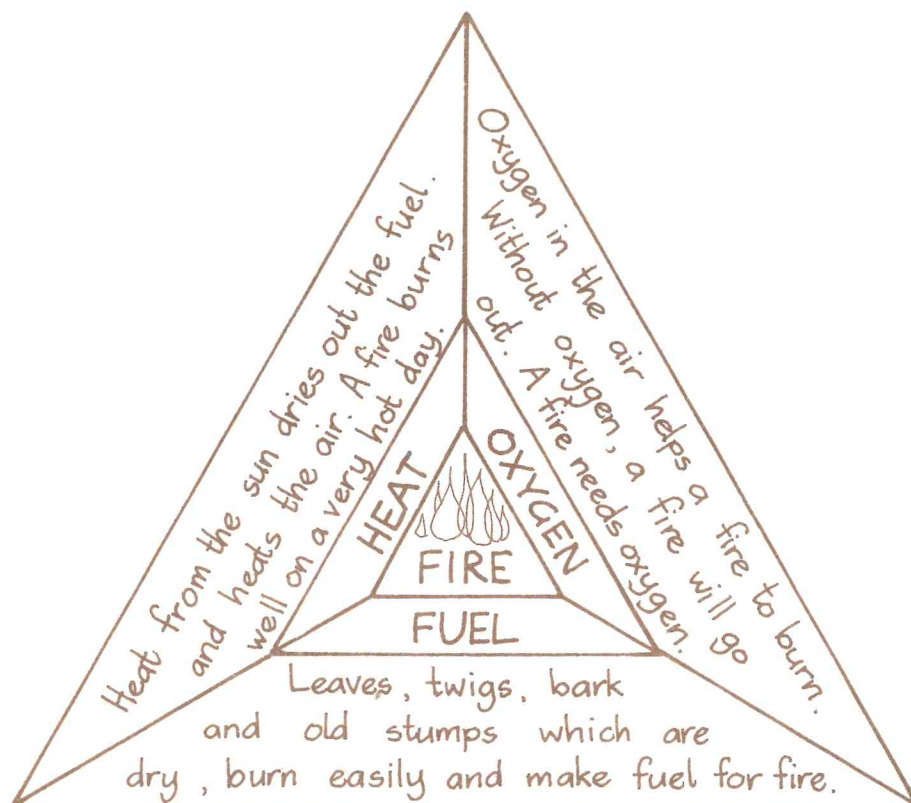 Heat from the sun dries out the fuel.
and heats the air. A fire burns
well on a very hot day.
HEAT
Oxygen in the air helps a fire to burn.
Without oxygen, a fire will go
out. A fire needs oxygen.
OXYGEN
FIRE
FUEL
Leaves, twigs, bark
and old stumps which are
dry, burn easily and make fuel for fire.